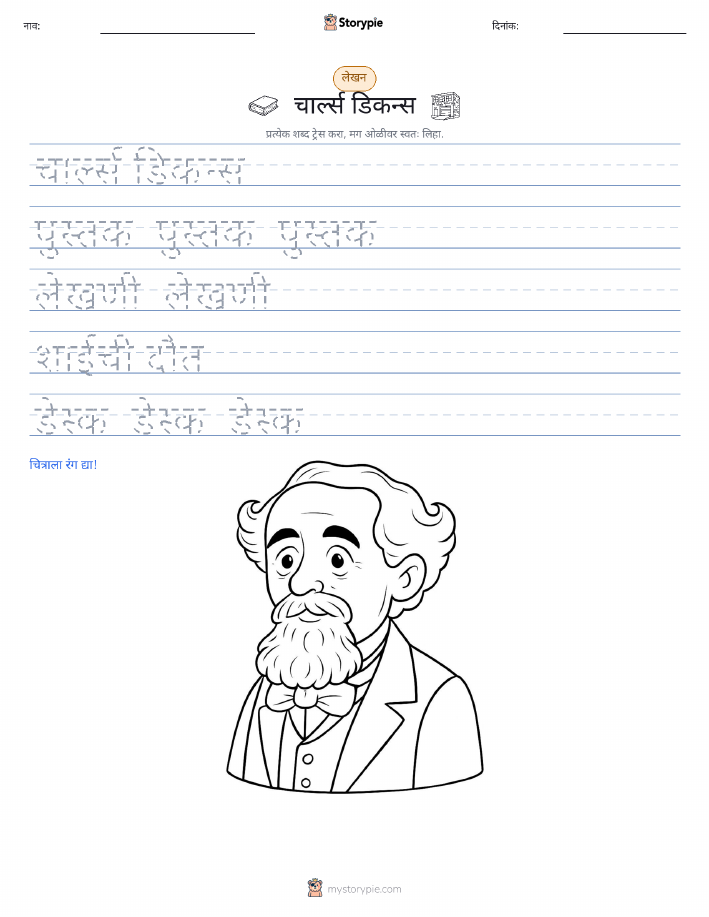 नाव:
Storypie
दिनांक:
लेखन
चार्ल्स डिकन्स
प्रत्येक शब्द ट्रेस करा, मग ओळीवर स्वतः लिहा.
चार्ल्स डिकन्स
पुस्तक पुस्तक पुस्तक
लेखणी लेखणी
शाईची दौत
डेस्क डेस्क डेस्क
चित्राला रंग द्या!
mystorypie.com